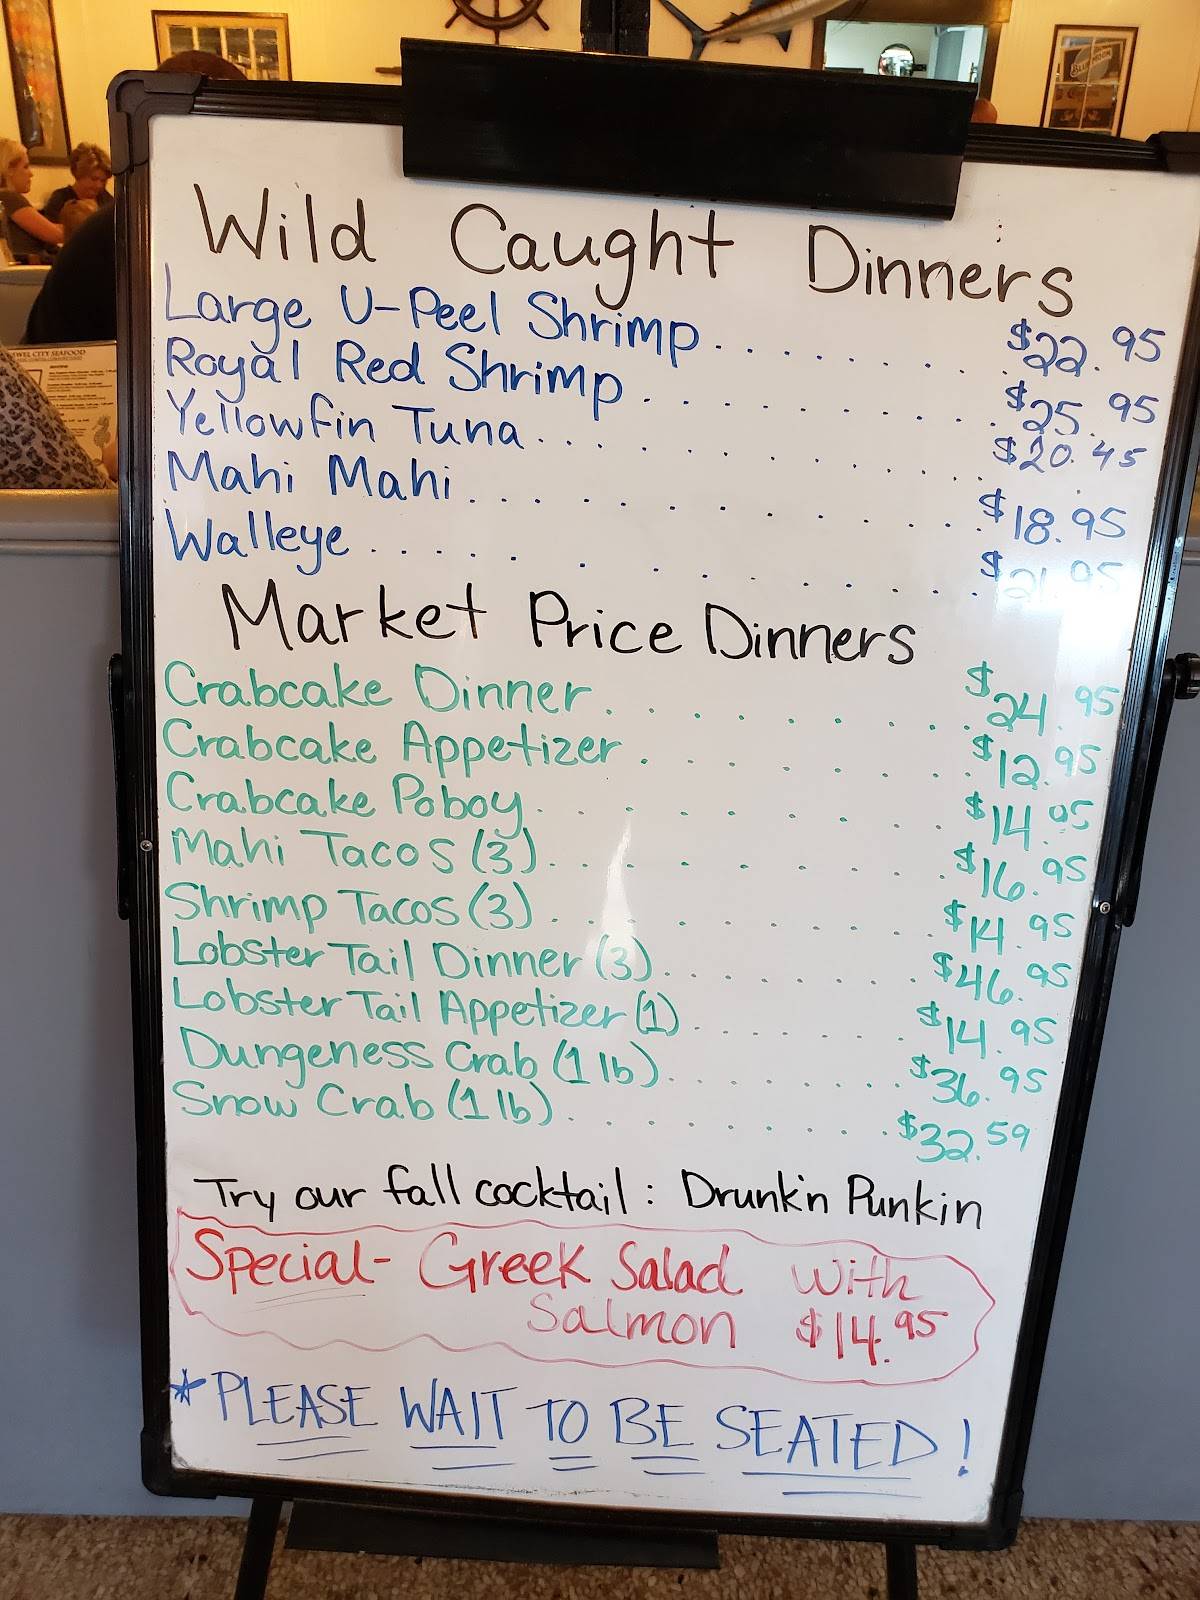 Wild Caught Dinners
Large U-Peel Shrimp.......... $22.95
Royal Red Shrimp.......... $25.95
Yellowfin Tuna.......... $20.45
Mahi Mahi.......... $18.95
Walleye.......... $21.95
Market Price Dinners
Crabcake Dinner.......... $24.95
Crabcake Appetizer.......... $12.95
Crabcake Poboy.......... $14.95
Mahi Tacos (3).......... $16.95
Shrimp Tacos (3).......... $14.95
Lobster Tail Dinner (3).......... $46.95
Lobster Tail Appetizer (1).......... $14.95
Dungeness Crab (1 lb).......... $36.95
Snow Crab (1 lb).......... $32.59
Try our fall cocktail: Drunk'n Punkin
Special- Greek Salad with
Salmon $14.95
*PLEASE WAIT TO BE SEATED!
CITY SEAFOOD